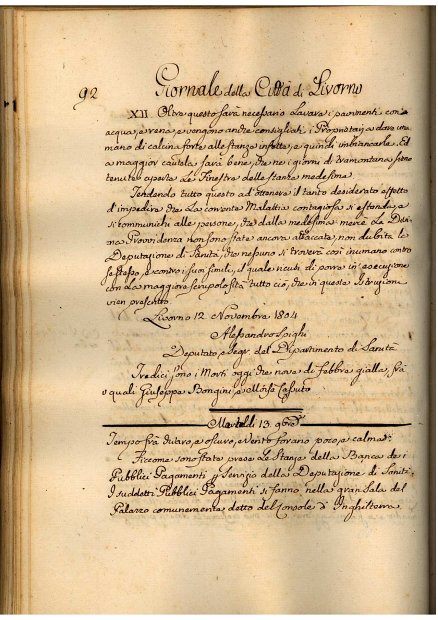 92
Giornale della Città di Livorno
XII Oltre questo sarà necessario Lavare i pavimenti con
acqua, e rena, e vengono anche consigliati i Proprietarj a dare una
mano di calcina forte alle stanze infette, e quindi imbiancarle. Ed
a maggior cautela sarà bene, che ne i giorni di tramontana sieno
tenute aperte Le Finestre delle stanze medesime.
Tendendo tutto questo ad ottenere il tanto desiderato effetto
d'impedire che La corrente Malattia contagiosa si estenda, e
si comunichi alle persone, che dalla medesima mercè La Divi=
na Provvidenza non sono state ancora attaccate, non dubita la
Deputazione di Sanità, che nessuno si troverà così inumano contro
se stesso, e contro i suoi simili, il quale ricusi di porre in esecuzione
con La maggiore scrupolosità tutto ciò, che in queste Istruzioni
vien prescritto.
Livorno 12 Novembre 1804
Alessandro
Deputato, e Segr. del Dipartimento di Sanità
Tredici sono i Morti oggi che nove di febbre gialla, fra
i quali Giuseppe Bongini, e Moisè Cassuto
Martedì 13 9bre
Tempo frà chiaro, e oscuro, e Vento forano poco, e calma.
Siccome sono state prese Le Stanze della Banca de i
Pubblici Pagamenti p Servizio della Deputazione di Sanità
I suddetti Pubblici Pagamenti si fanno nella gran Sala del
Palazzo comunemente detto del Console d'Inghilterra